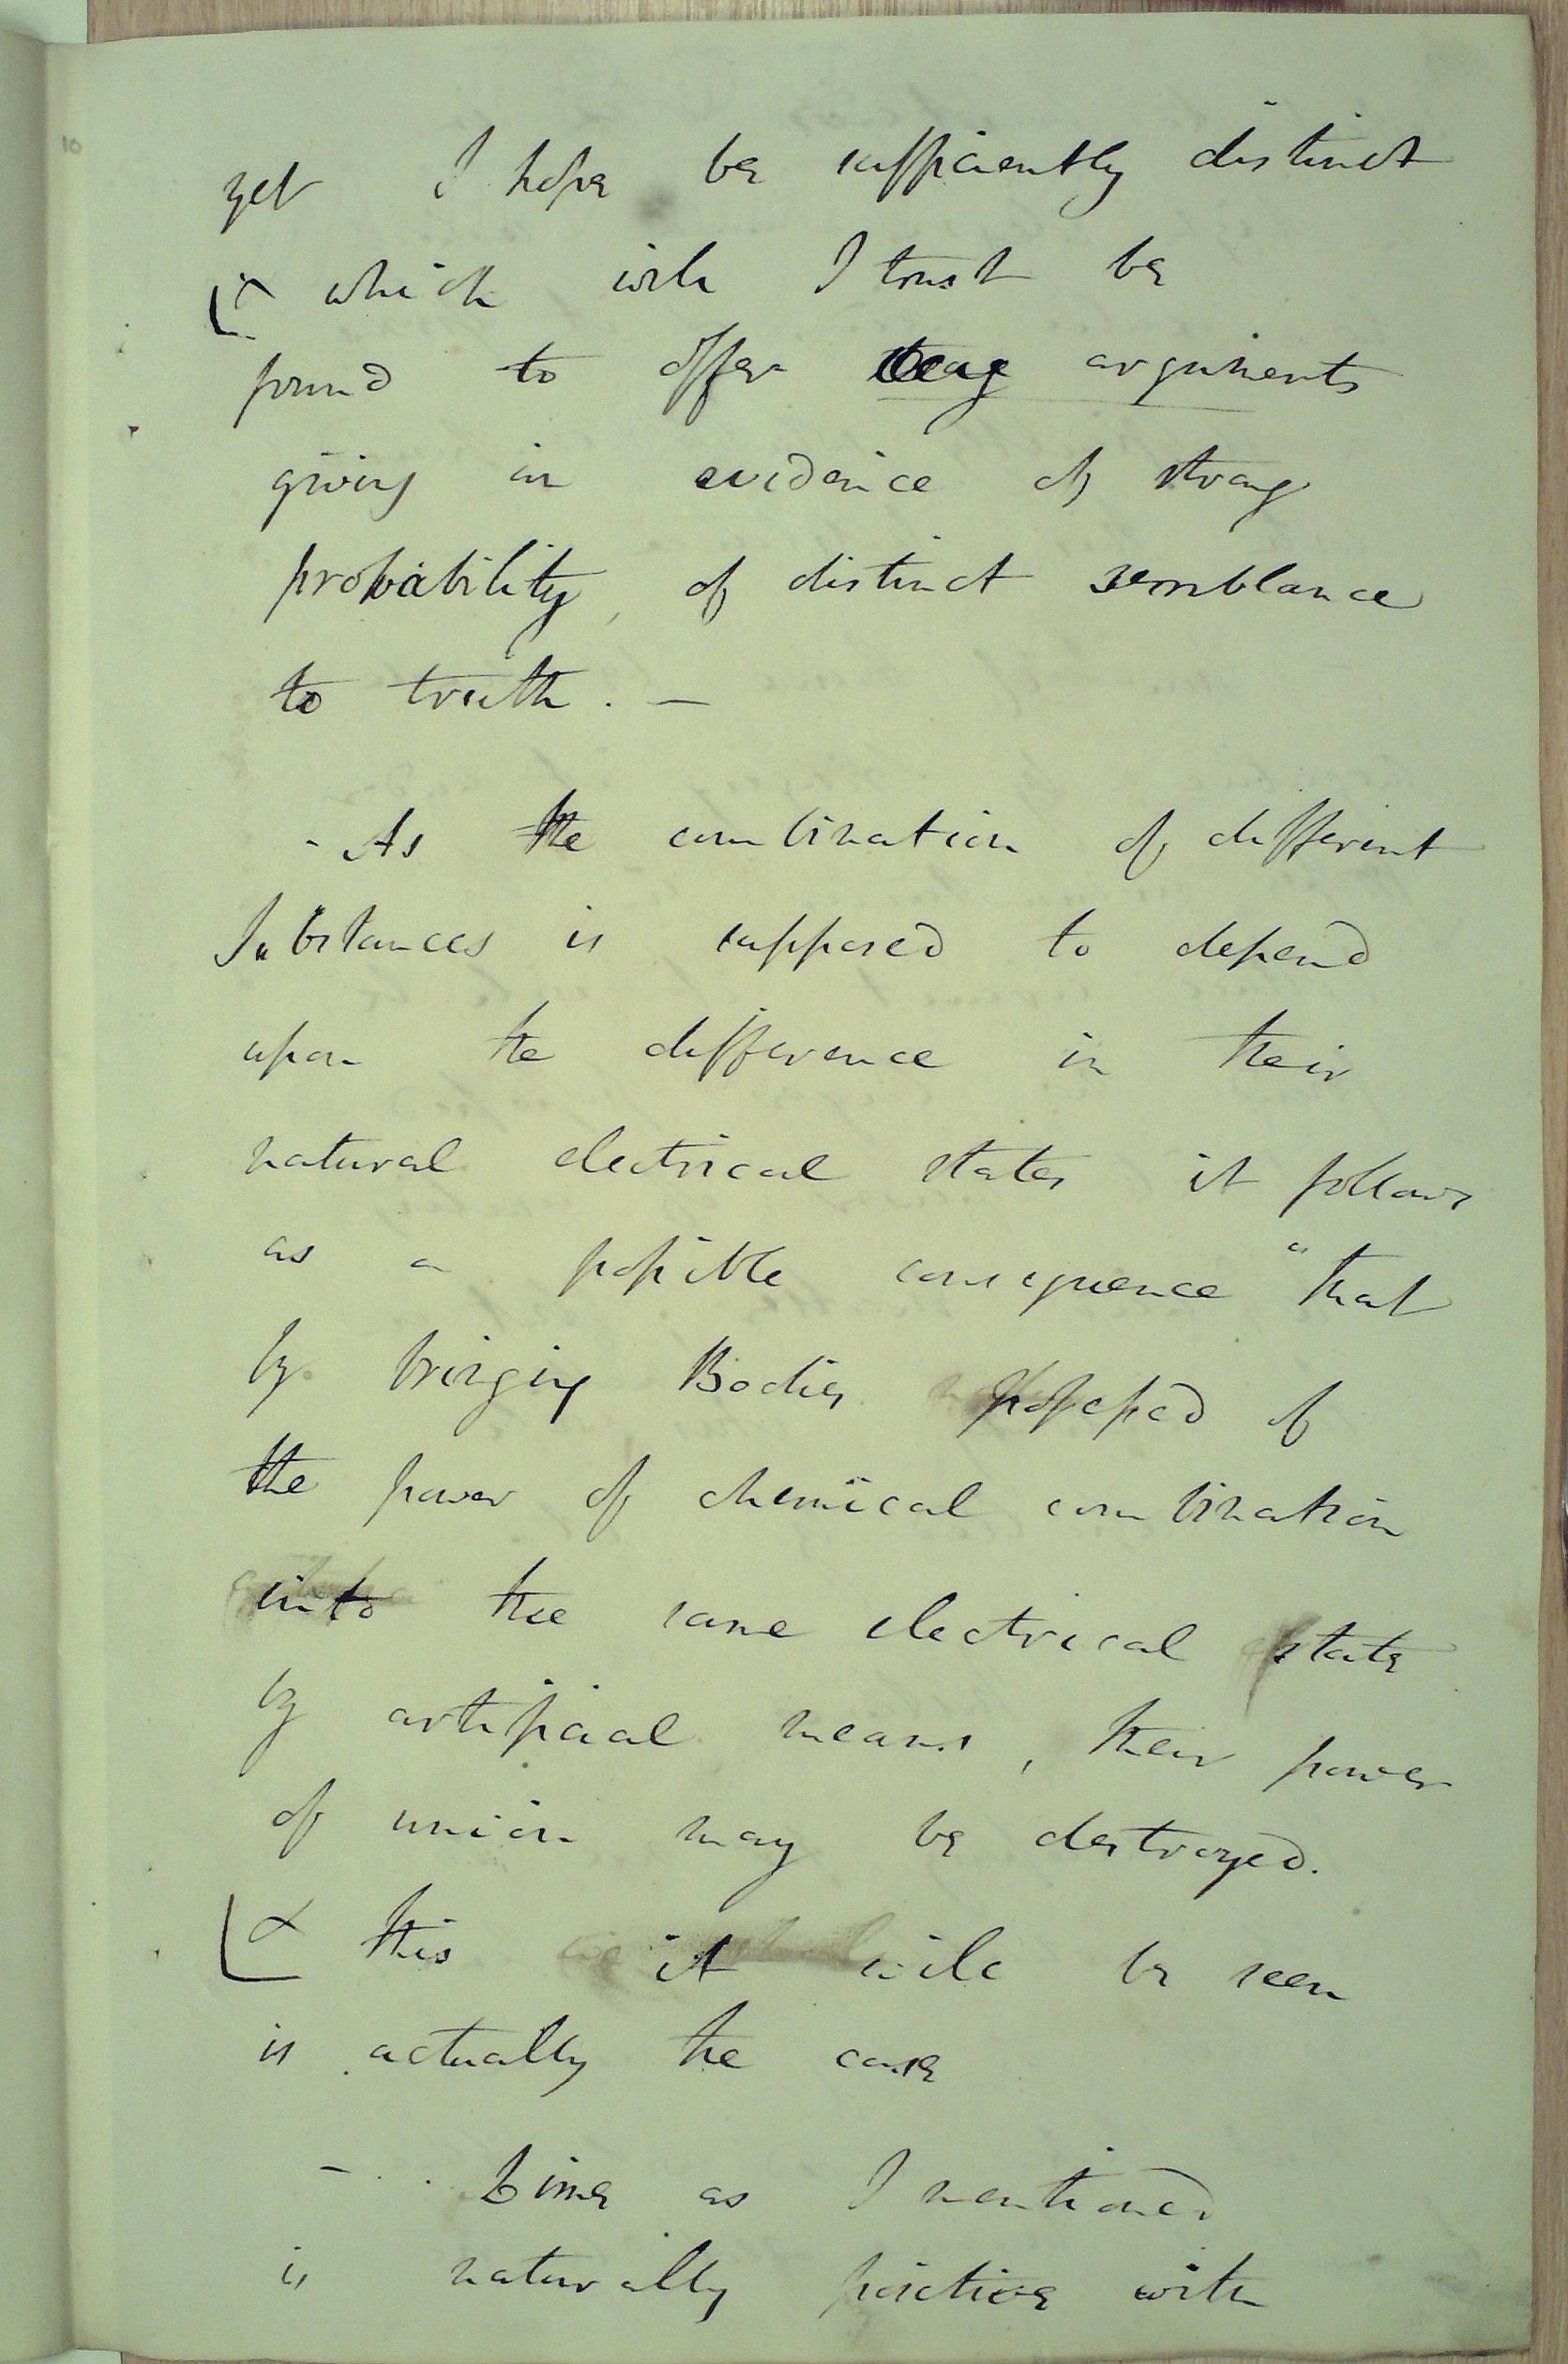 10
yet I hope be sufficiently distinct
x which will I trust be
found to offer arguments
giving in evidence of strong
probability, of distinct semblance
to truth. —
- As the combination of different
Substances is supposed to depend
upon the difference in their
natural electrical states it follows
as a possible consequence "that
by bringing Bodies possessed of
the power of chemical combination
into the same electrical state
by artificial means, their power
of union may be destroyed.
x this it will be seen
is actually the case
- Lime as I mentioned
is naturally positive with